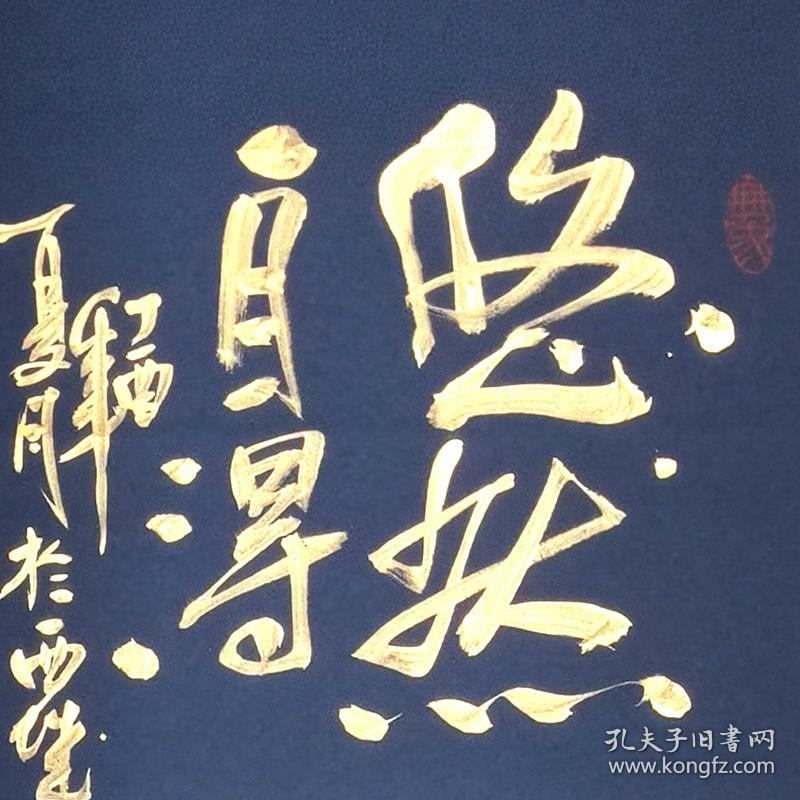 悠然
自得
丁酉年
夏月於西
孔夫子旧书网
www.kongfz.com